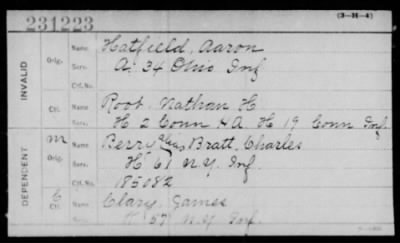 231223
(3-H-4)
INVALID
Orig. Name Hatfield, Aaron
Serv. A. 34 Ohio Inf
Ctf. No.
Ctf. Name Root, Nathan H
Serv. H 2 Conn HA. H 19 Conn Inf.
DEPENDENT
M Orig. Name Berry alias Bratt, Charles
Serv. H 61 N.Y. Inf.
Ctf. No. 185082
C Ctf. Name Clary, James
Serv. 57 N.Y. Inf.